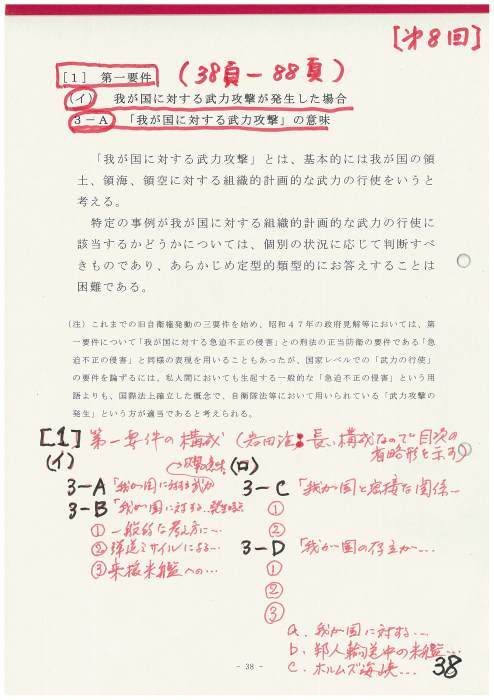 [第8回]
[1] 第一要件 (38頁－88頁)
(イ) 我が国に対する武力攻撃が発生した場合
3－A 「我が国に対する武力攻撃」の意味
「我が国に対する武力攻撃」とは、基本的には我が国の領
土、領海、領空に対する組織的計画的な武力の行使をいうと
考える。
特定の事例が我が国に対する組織的計画的な武力の行使に
該当するかどうかについては、個別の状況に応じて判断すべ
きものであり、あらかじめ定型的類型的にお答えすることは
困難である。
(注) これまでの旧自衛権発動の三要件を始め、昭和４７年の政府見解等においては、第
一要件について「我が国に対する急迫不正の侵害」との刑法の正当防衛の要件である「急
迫不正の侵害」と同様の表現を用いることもあったが、国家レベルでの「武力の行使」
の要件を論ずるには、私人間においても生起する一般的な「急迫不正の侵害」という用
語よりも、国際法上確立した概念で、自衛隊法等において用いられている「武力攻撃の
発生」という方が適当であると考えられる。
[1] 第一要件の構成 (岩田注:長い構成なので目次の
省略形を示す)
(イ)
3－A「我が国に対する武力
3－B「我が国に対する…発生時点
① 一般的な考え方に…
② 弾道ミサイルによる…
③ 来援米艦への…
(ロ)
3－C「我が国と密接な関係…
①
②
3－D「我が国の存立が…
①
②
③
a. 我が国に対する…
b. 邦人輸送中の米艦…
c. ホルムズ海峡…
- 38 -
38